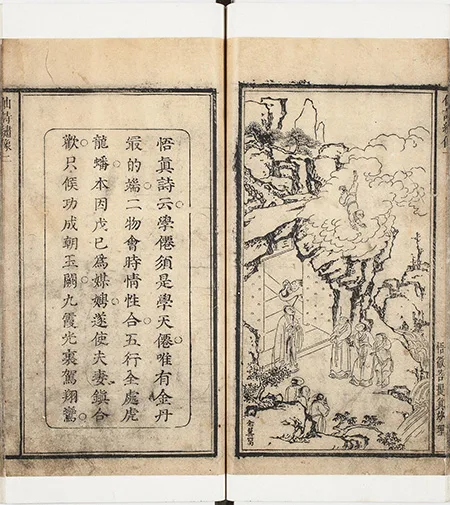 悟徹菩提真妙理
悟真詩云學僊須是學天僊唯有金丹
最的端二物會時情性合五行全處虎
龍蟠本因戊己為媒娉遂使夫妻鎮合
歡只候功成朝玉闕九霞光裏駕翔鸞
仙詩繡像二